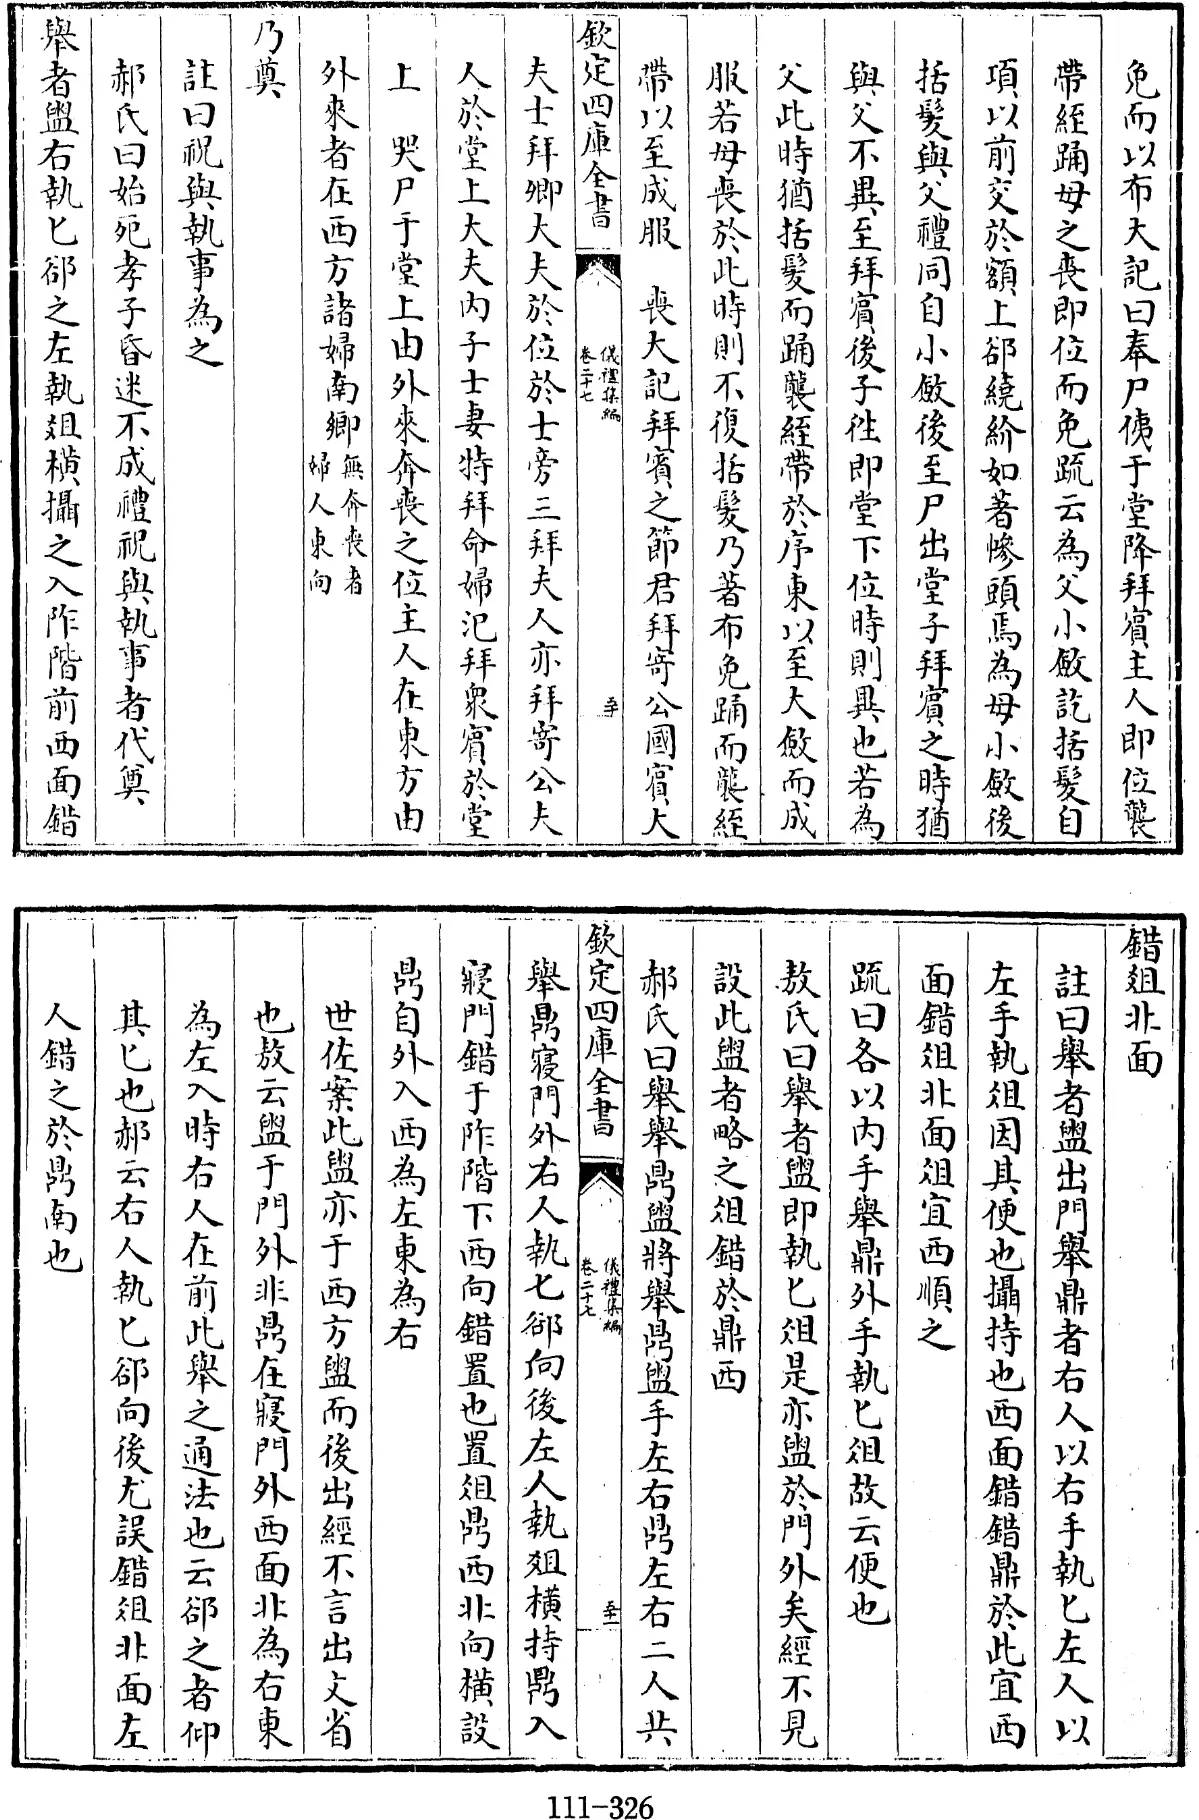 免而以布大記曰奉尸侇于堂降拜賔主人即位襲
帶絰踊母之喪即位而免疏云為父小斂訖括髮自
項以前交於額上郤繞紒如著幓頭焉為母小斂後
括髮與父禮同自小斂後至尸出堂子拜賔之時猶
與父不異至拜賔後子往即堂下位時則異也若為
父此時猶括髮而踊襲絰帶於序東以至大斂而成
服若母喪於此時則不復括髮乃著布免踊而襲絰
帶以至成服　喪大記拜賓之節君拜寄公國賔大
欽定四庫全書　儀禮集編　卷二十七　五十
夫士拜卿大夫於位於士旁三拜夫人亦拜寄公夫
人於堂上大夫内子士妻特拜命婦氾拜衆賔於堂
上　哭尸于堂上由外來奔喪之位主人在東方由
外來者在西方諸婦南鄉無奔喪者婦人東向
乃奠
註曰祝與執事為之
郝氏曰始死孝子昏迷不成禮祝與執事者代奠
舉者盥右執匕郤之左執俎橫攝之入阼階前西面錯
錯俎北面
註曰舉者盥出門舉鼎者右人以右手執匕左人以
左手執俎因其便也攝持也西面錯錯鼎於此宜西
面錯俎北面俎宜西順之
疏曰各以内手舉鼎外手執匕俎故云便也
敖氏曰舉者盥即執匕俎是亦盥於門外矣經不見
設此盥者略之俎錯於鼎西
郝氏曰舉舉鼎盥將舉鼎盥手左右鼎左右二人共
欽定四庫全書　儀禮集編　卷二十七　五十一
舉鼎寢門外右人執匕郤向後左人執俎橫持鼎入
寢門錯于阼階下西向錯置也置俎鼎西北向橫設
鼎自外入西為左東為右
世佐案此盥亦于西方盥而後出經不言出文省
也敖云盥于門外非鼎在寢門外西面北為右東
為左入時右人在前此舉之通法也云郤之者仰
其匕也郝云右人執匕郤向後尤誤錯俎北面左
人錯之於鼎南也
111-326